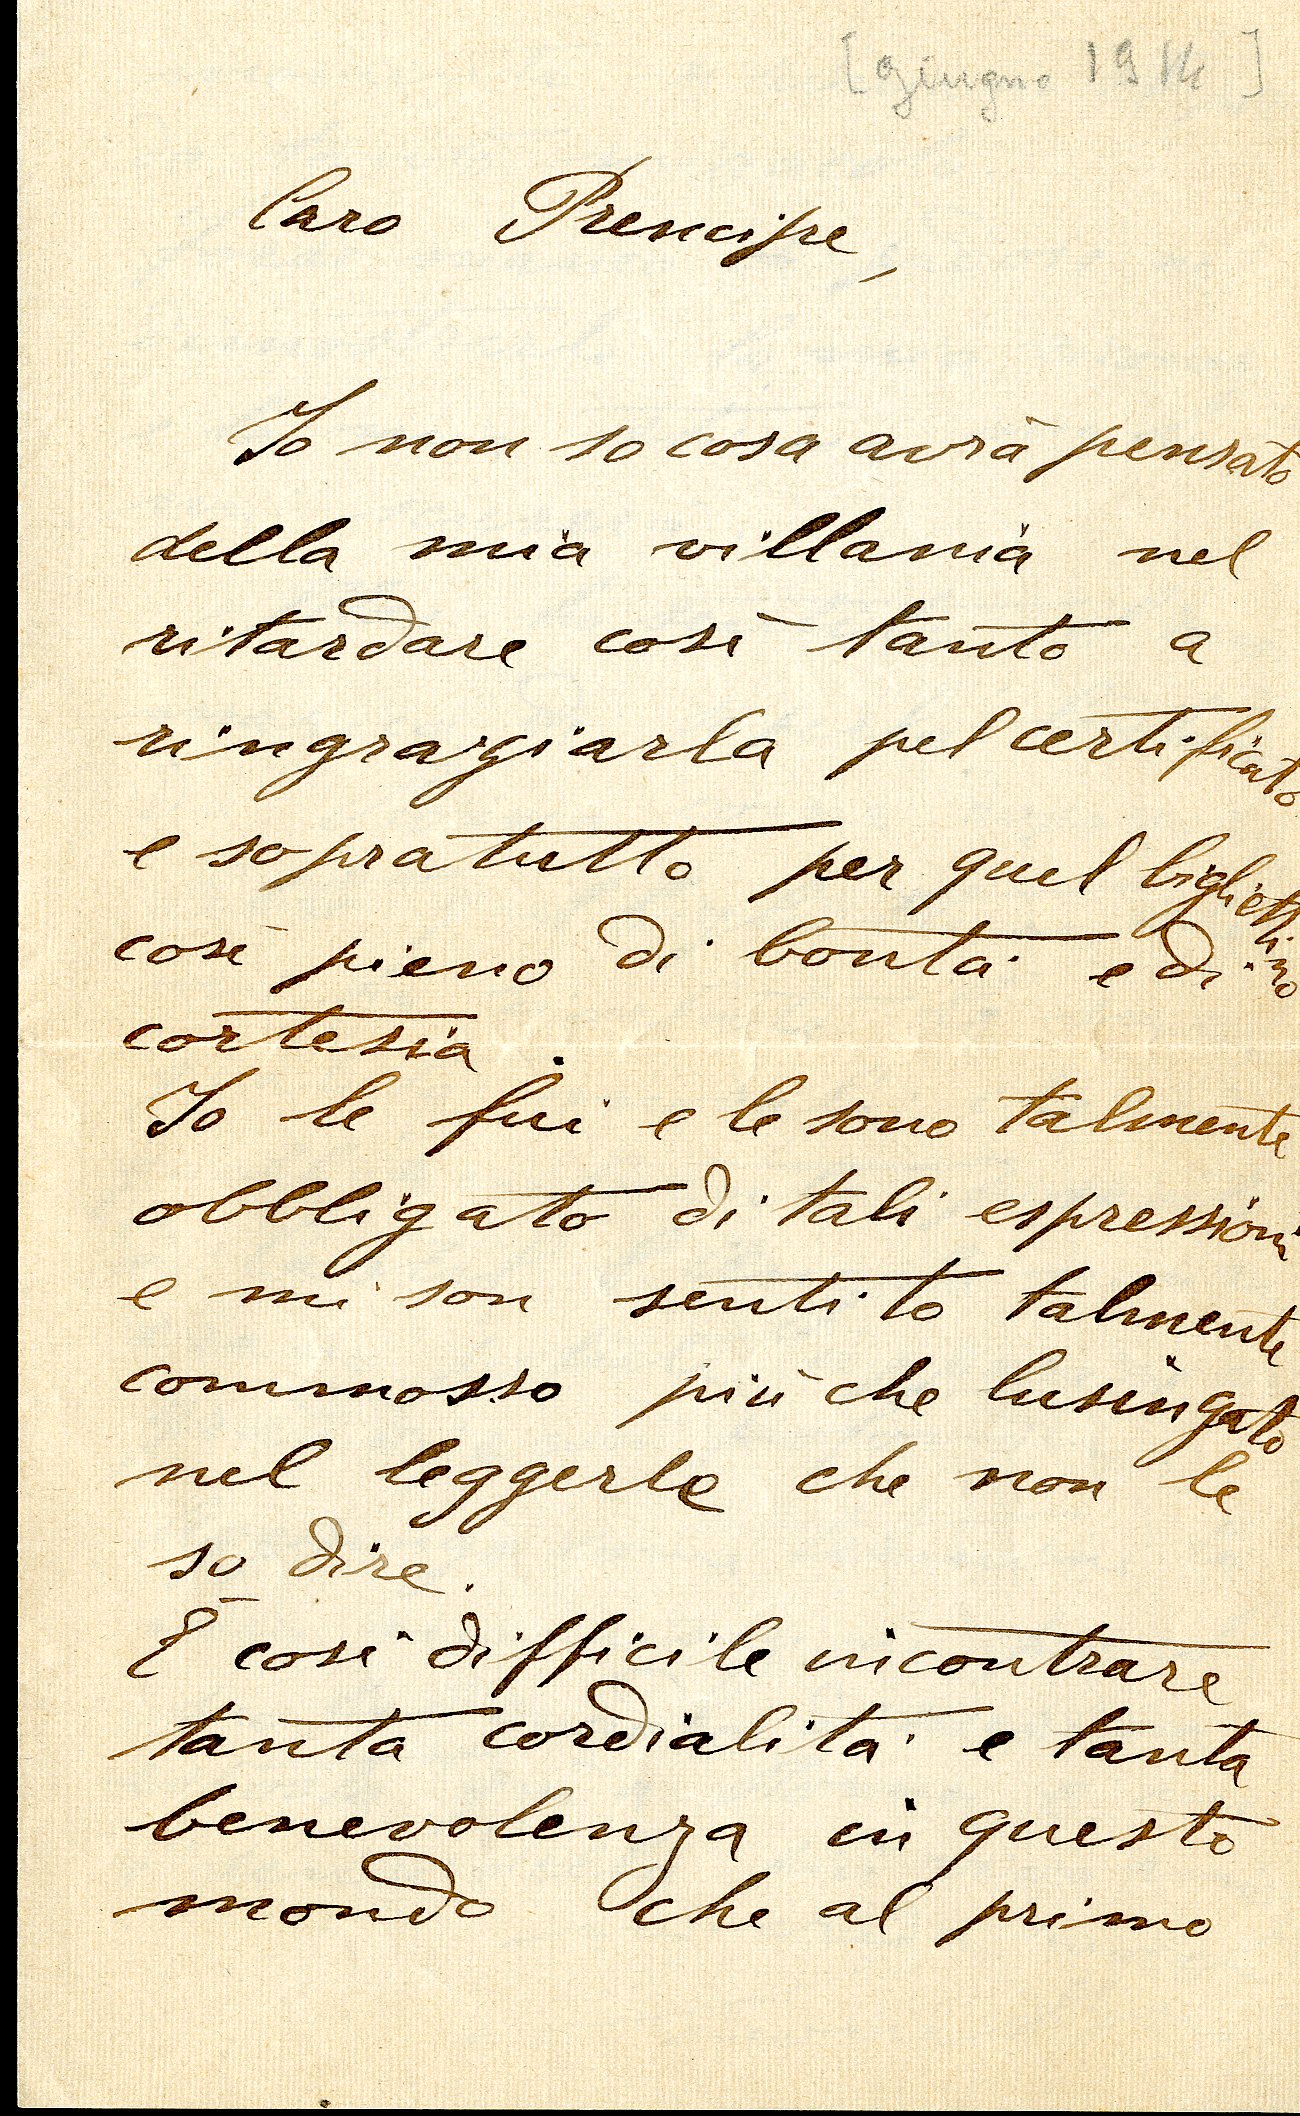 [giugno 1914]
Caro Prencipe,
Io non so cosa avrà pensato
della mia villania nel
ritardare così tanto a
ringraziarla pel certificato
e sopratutto per quel bigliettino
così pieno di bontà e di
cortesia.
Io le fui e le sono talmente
obbligato di tali espressioni
e mi son sentito talmente
commosso più che lusingato
nel leggerle che non le
so dire.
È così difficile incontrare
tanta cordialità e tanta
benevolenza in questo
mondo che al primo